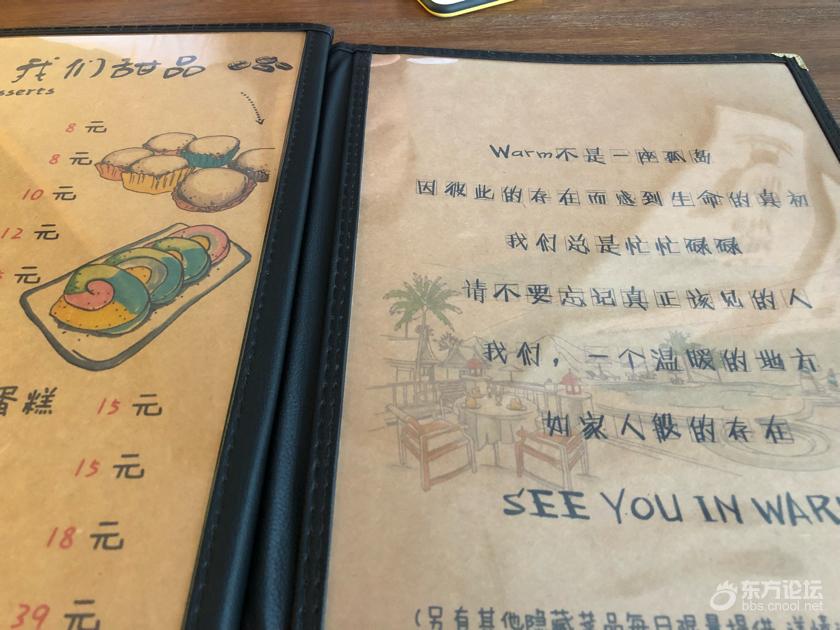 我们甜品
sserts
8 元
8 元
10 元
12 元
元
蛋糕 15 元
15 元
18 元
39 元
Warm不是一座孤岛
因彼此的存在而感到生命的真初
我们总是忙忙碌碌
请不要忘记真正该见的人
我们，一个温暖的地方
如家人般的存在
SEE YOU IN WAR
(另有其他隐藏菜品每日限量提供 详情
东方论坛
bbs.cnool.net